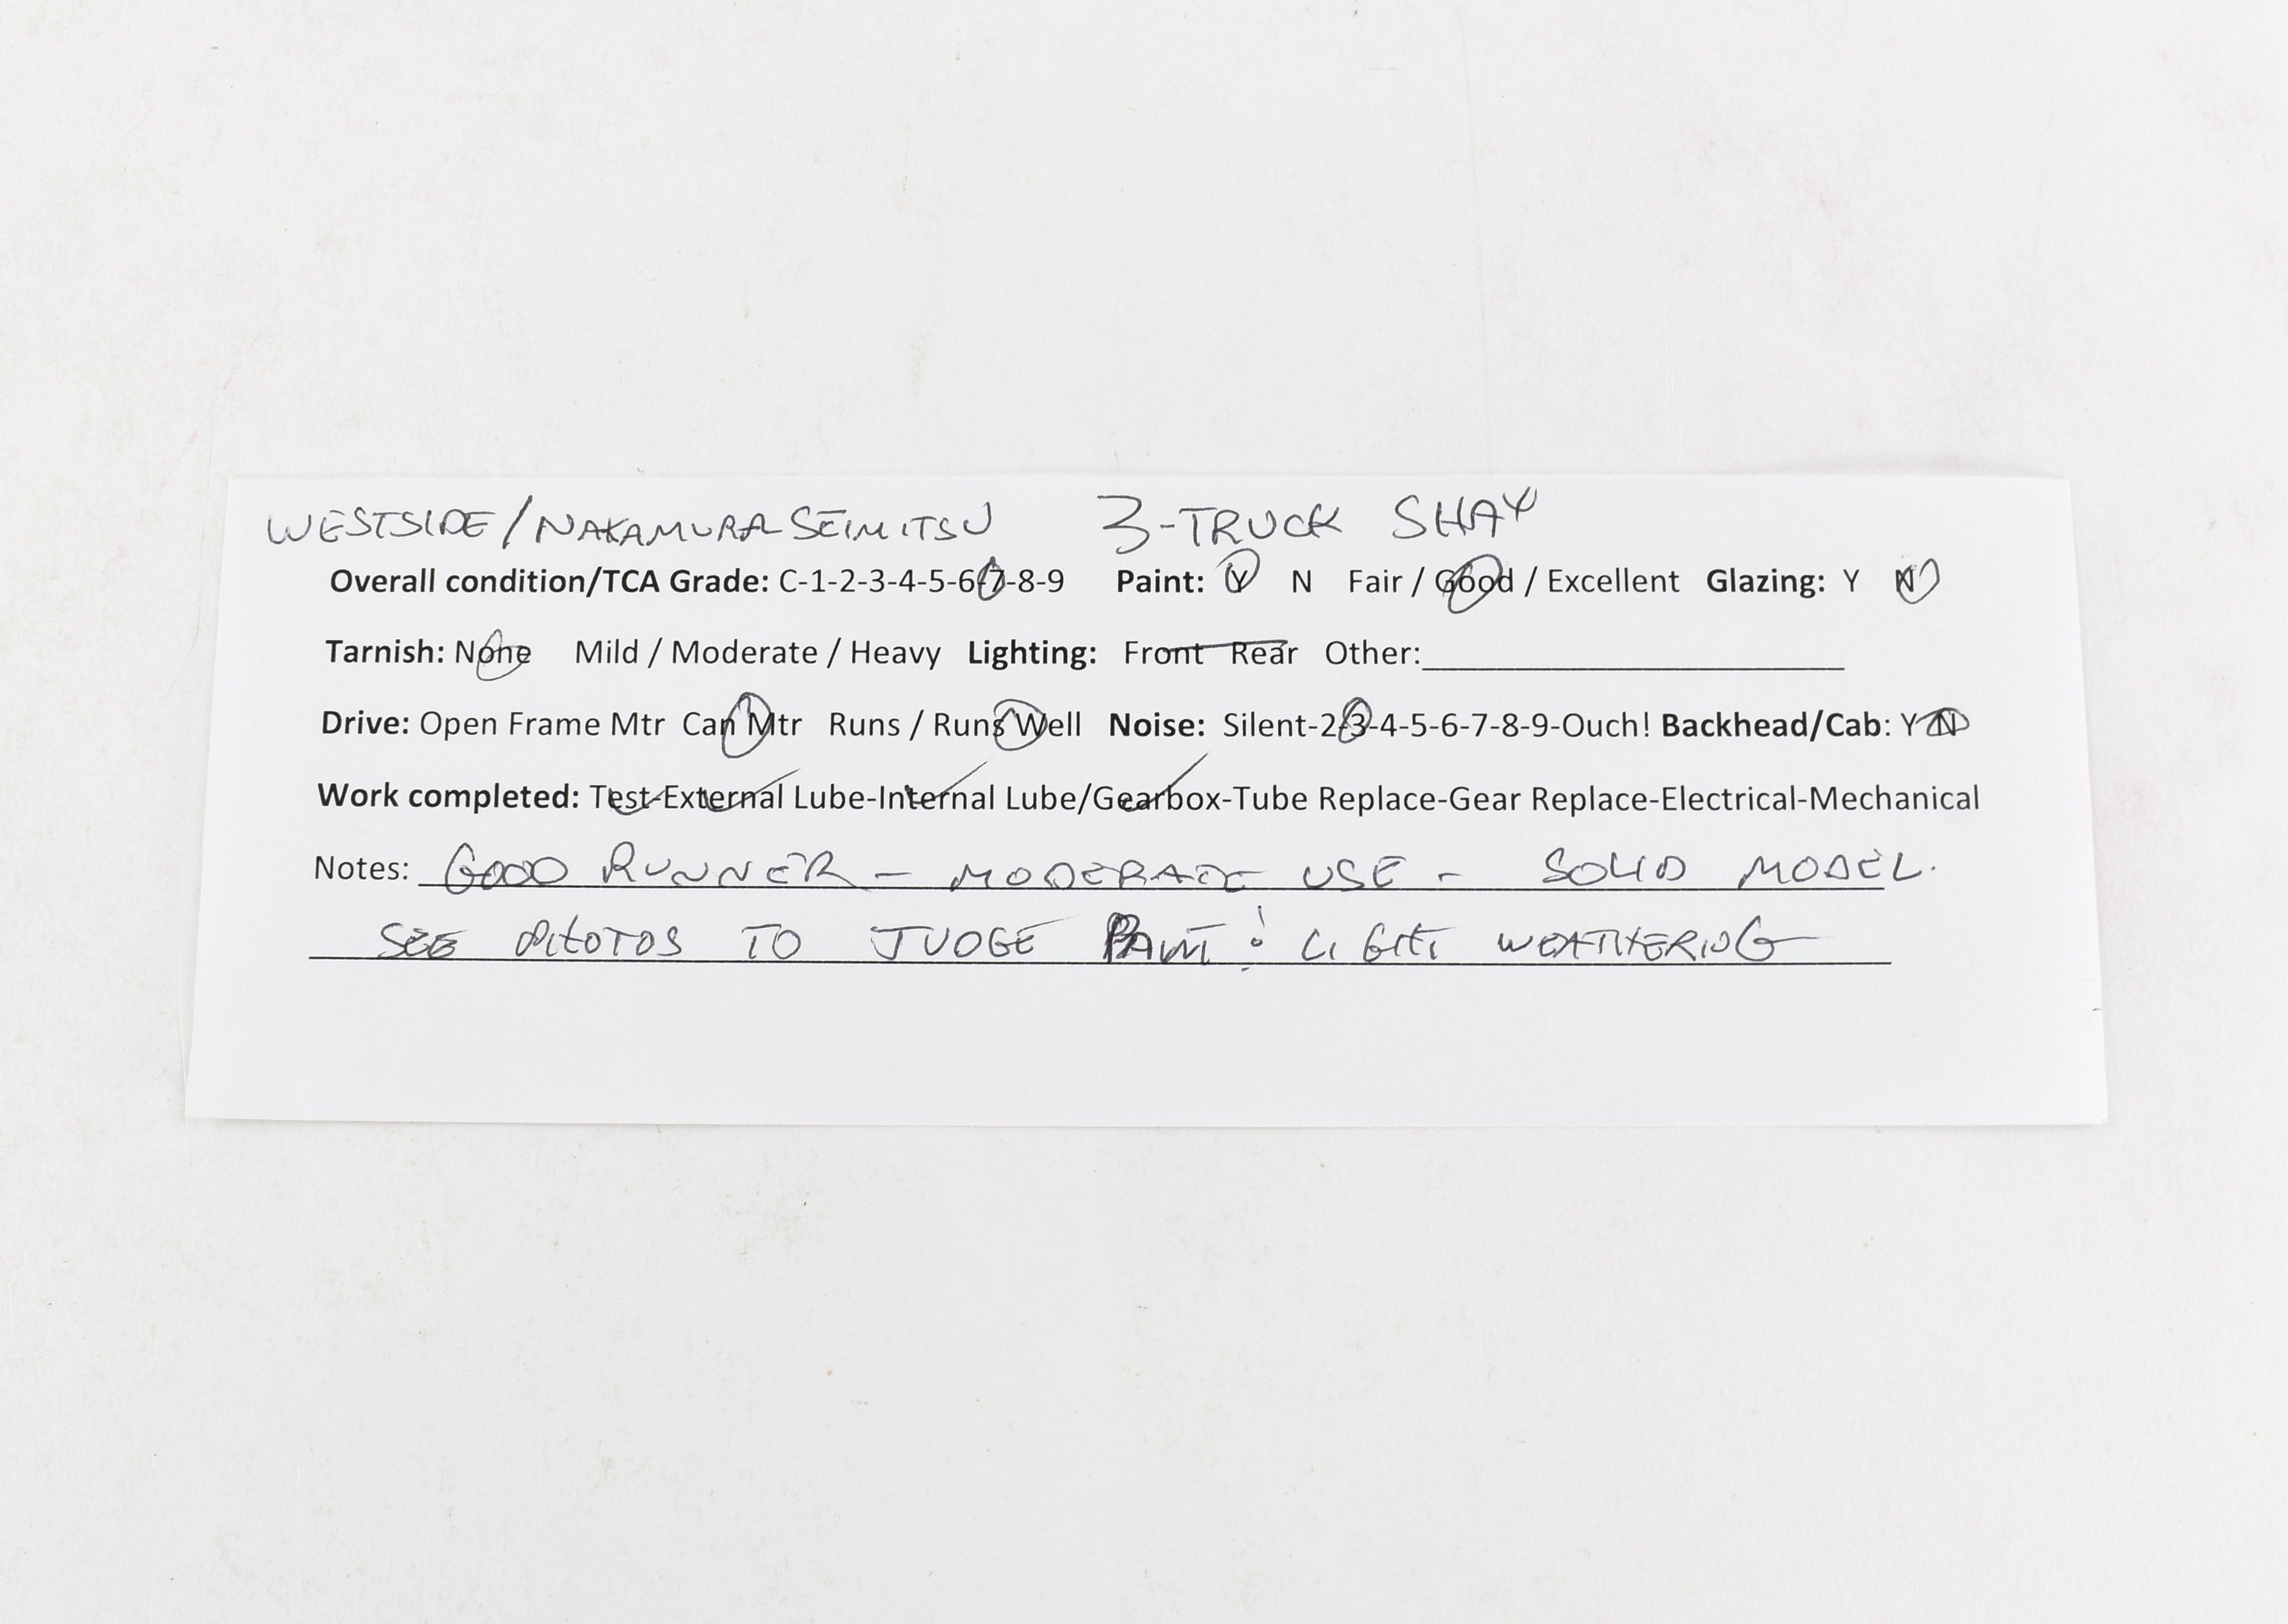 WESTSIDE/NAKAMURA SEIMITSU 3-TRUCK SHAY
Overall condition/TCA Grade: C-1-2-3-4-5-6-7-8-9 Paint: Y N Fair / Good / Excellent Glazing: Y N
Tarnish: None Mild / Moderate / Heavy Lighting: Front Rear Other:
Drive: Open Frame Mtr Can Mtr Runs / Runs Well Noise: Silent-2-3-4-5-6-7-8-9-Ouch! Backhead/Cab: Y N
Work completed: Test-External Lube-Internal Lube/Gearbox-Tube Replace-Gear Replace-Electrical-Mechanical
Notes: GOOD RUNNER - MODERATE USE - SOLID MODEL.
SEE PHOTOS TO JUDGE PAINT! LIGHT WEATHERING